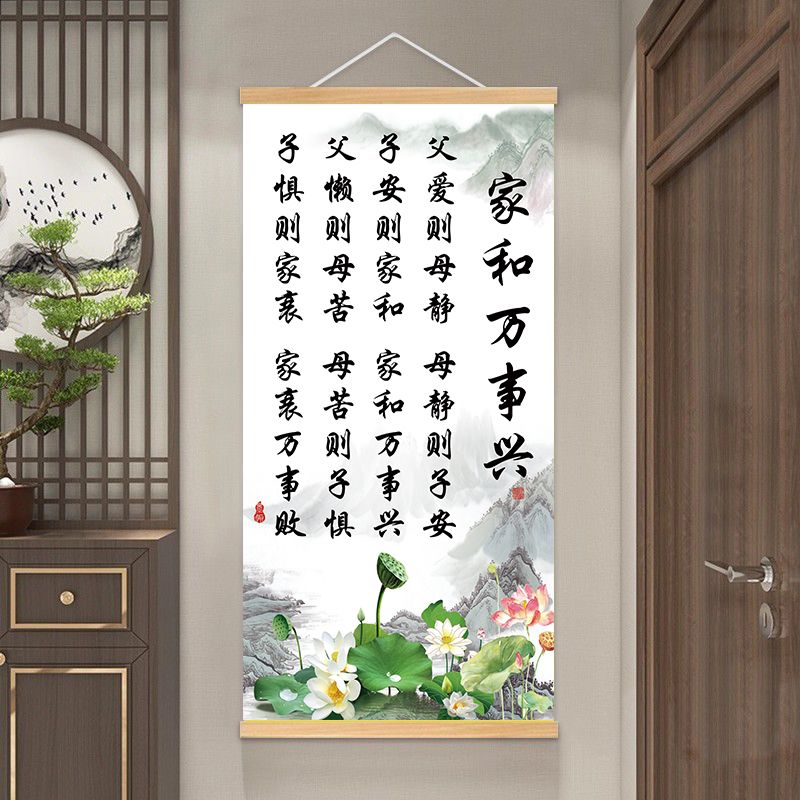 家和万事兴
父爱则母静 母静则子安
子安则家和 家和万事兴
父懒则母苦 母苦则子惧
子惧则家衰 家衰万事败